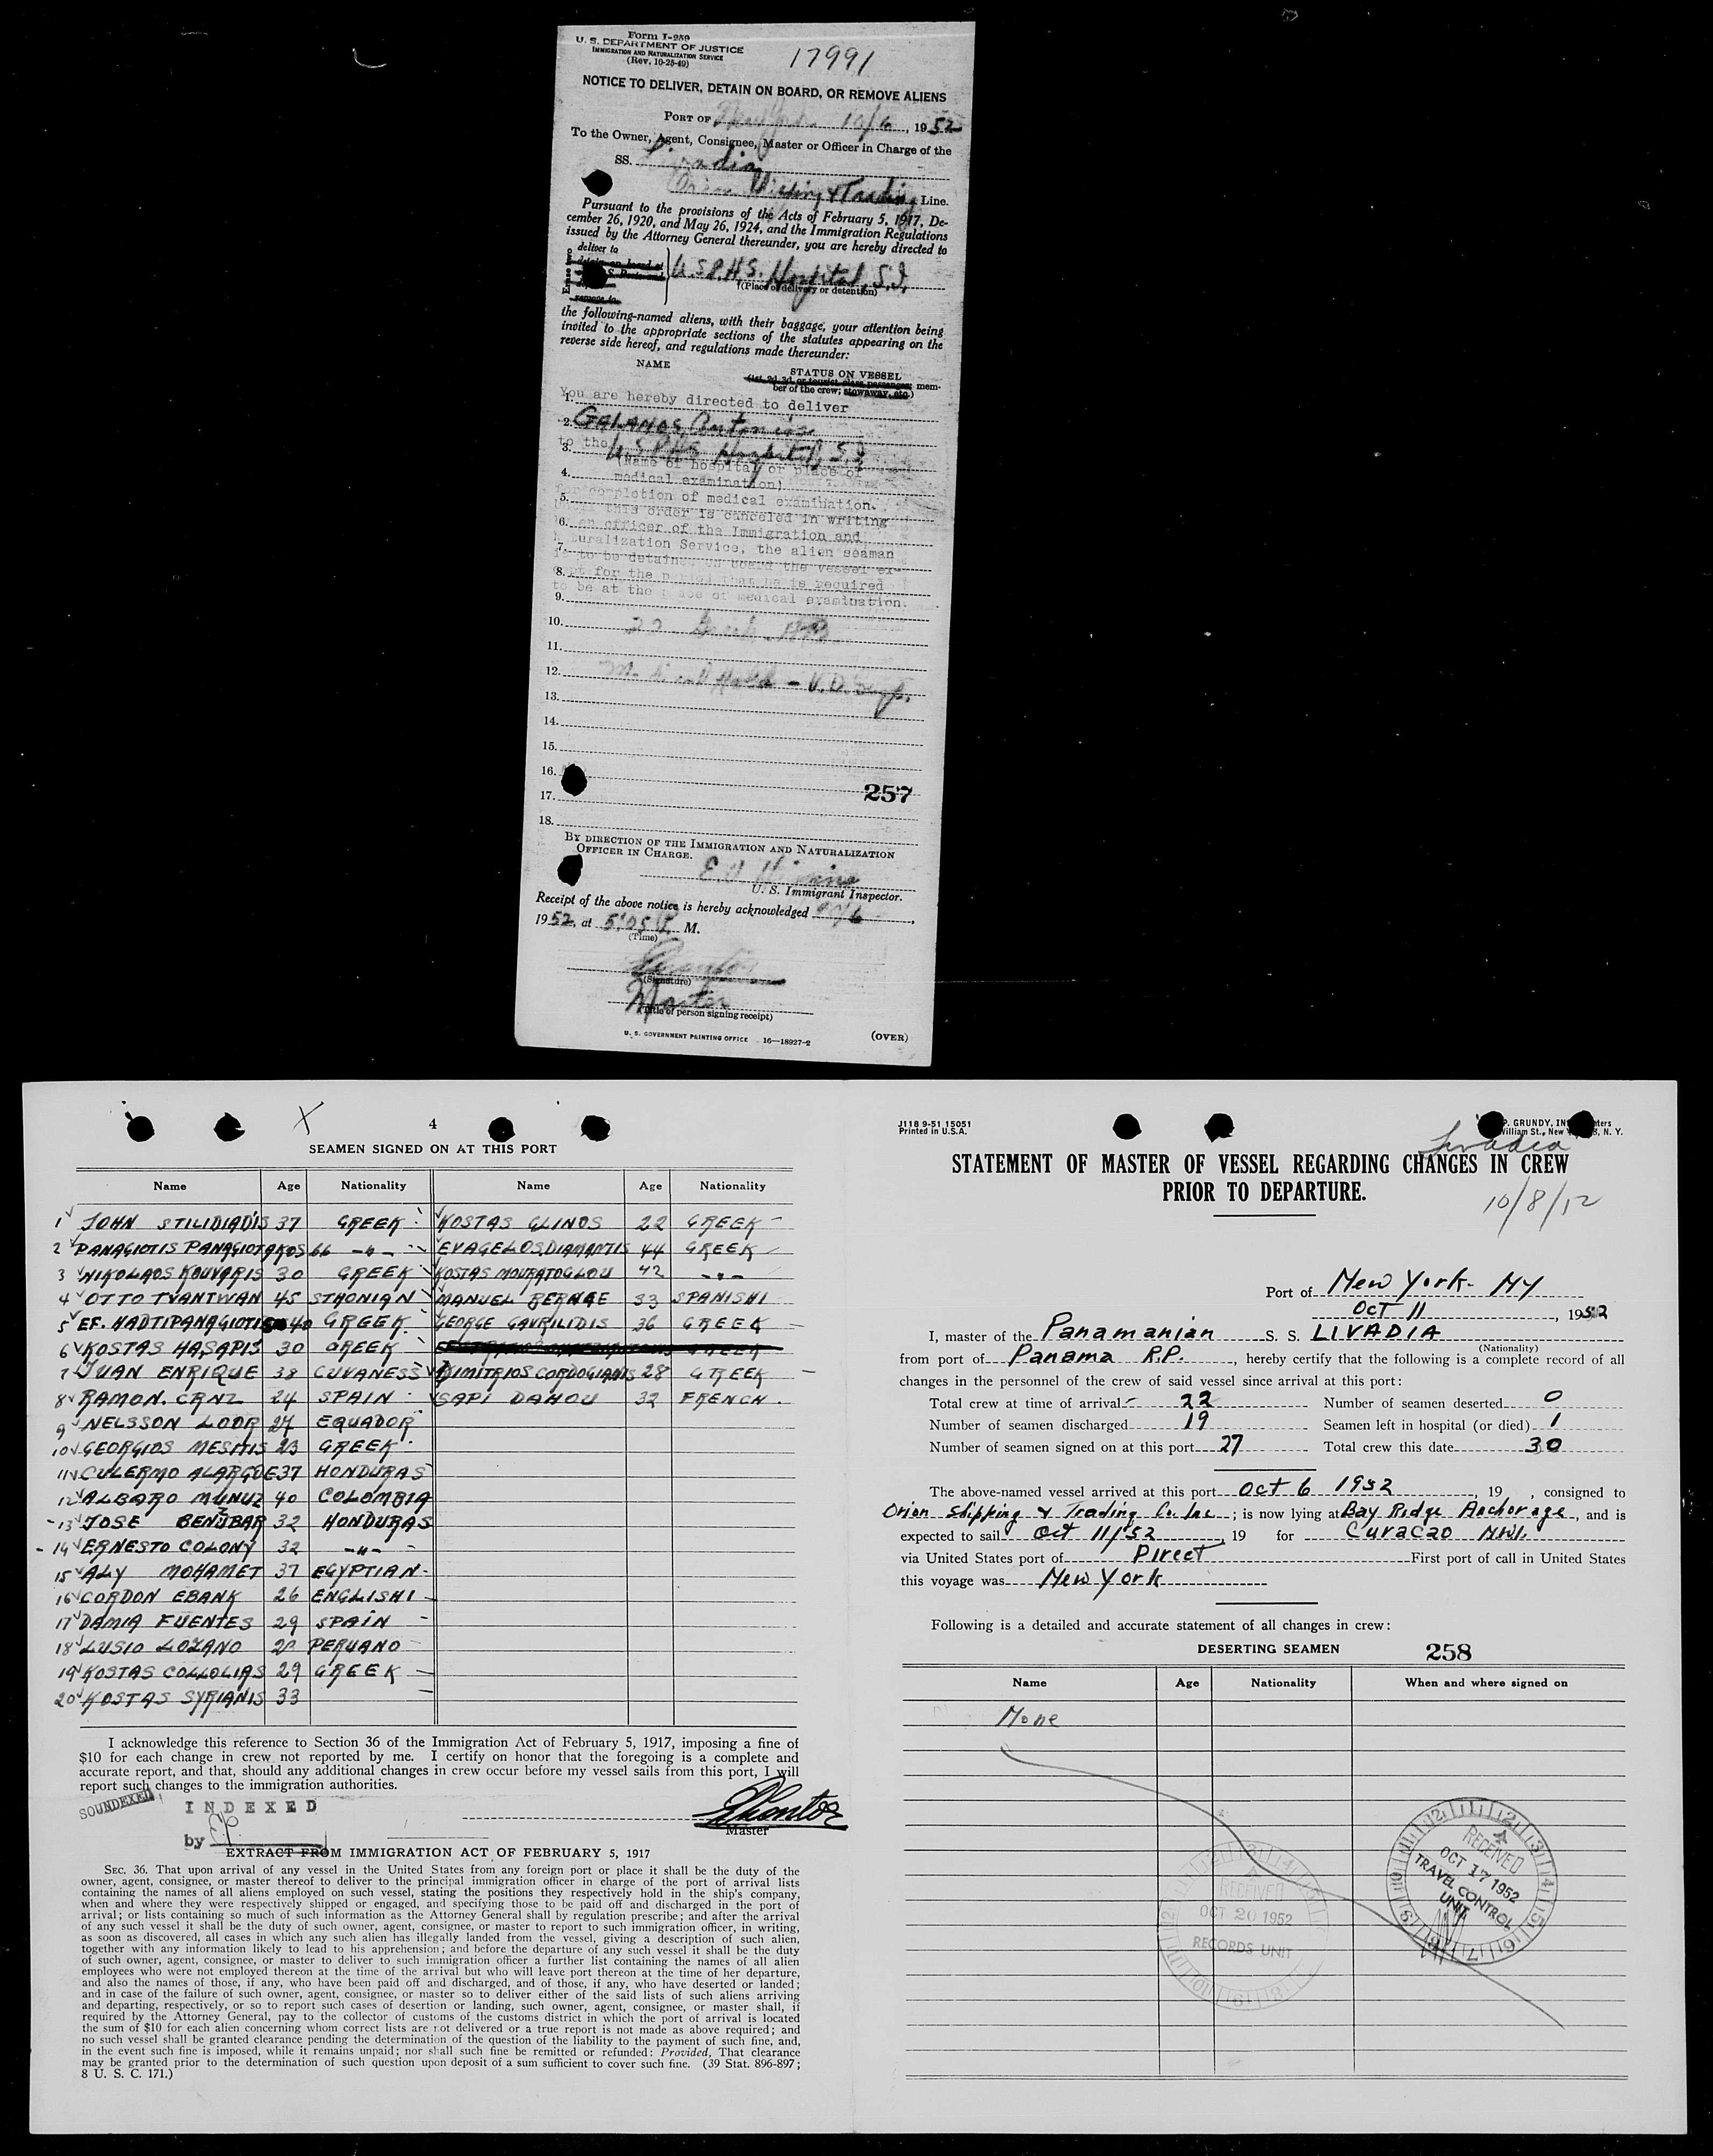 Form I-259
U. S. DEPARTMENT OF JUSTICE
IMMIGRATION AND NATURALIZATION SERVICE
(Rev. 10-25-49)
17991
NOTICE TO DELIVER, DETAIN ON BOARD, OR REMOVE ALIENS
PORT OF New York 10/6, 1952
To the Owner, Agent, Consignee, Master or Officer in Charge of the
SS. Livadia
Orion Shipping & Trading Line.
Pursuant to the provisions of the Acts of February 5, 1917, De-
cember 26, 1920, and May 26, 1924, and the Immigration Regulations
issued by the Attorney General thereunder, you are hereby directed to
deliver to
detain on board at
remove to
U.S.P.H.S. Hospital, S.I.
(Place of delivery or detention)
the following-named aliens, with their baggage, your attention being
invited to the appropriate sections of the statutes appearing on the
reverse side hereof, and regulations made thereunder:
NAME STATUS ON VESSEL
(1st, 2d, 3d, or tourist class passenger; mem-
ber of the crew; stowaway, etc.)
1. You are hereby directed to deliver
2. GALANOS,
3. to the U.S.P.H.S. Hospital, S.I.
(Name of hospital or place of
4. medical examination)
5. for completion of medical examination.
this order is canceled in writing
6. an officer of the Immigration and
7. Naturalization Service, the alien seaman
is to be detained on board the vessel ex-
8. cept for the period that he is required
to be at the place of medical examination.
9.
10. 22
11.
12. Medical Hold - V.D.
13.
14.
15.
16.
257
17.
18.
BY DIRECTION OF THE IMMIGRATION AND NATURALIZATION
OFFICER IN CHARGE.
U. S. Immigrant Inspector.
Receipt of the above notice is hereby acknowledged 10/6,
1952, at 5:05 P. M.
(Time)
(Signature)
Master
(Title of person signing receipt)
U. S. GOVERNMENT PRINTING OFFICE 16—18927-2
(OVER)
X
4
SEAMEN SIGNED ON AT THIS PORT
Name Age Nationality Name Age Nationality
1 JOHN STILIDIADIS 37 GREEK KOSTAS GLINOS 22 GREEK
2 PANAGIOTIS PANAGIOTAKOS 66 -"- EVAGELOS DIAMANTIS 44 GREEK
3 NIKOLAOS KOUVARIS 30 GREEK KOSTAS MOURATOGLOU 42 -"-
4 OTTO TVANTWAN 45 STHONIAN MANUEL BERNGE 33 SPANISH
5 EF. HADTIPANAGIOTIS 40 GREEK GEORGE GAVRILIDIS 36 GREEK
6 KOSTAS HASAPIS 30 GREEK
7 JUAN ENRIQUE 38 CUVANESS DIMITRIOS CORDOGIANIS 28 GREEK
8 RAMON. CRNZ 24 SPAIN SAPI DAHOU 32 FRENCH.
9 NELSSON LOOR 27 EQUADOR
10 GEORGIOS MESITIS 23 GREEK
11 CULERMO ALARGOE 37 HONDURAS
12 ALBARO MUNUZ 40 COLOMBIA
13 JOSE BENUBAR 32 HONDURAS
14 ERNESTO COLONY 32 -"-
15 ALY MOHAMET 37 EGYPTIAN
16 CORDON EBANK 26 ENGLISH
17 DAMIA FUENTES 29 SPAIN
18 LUSIO LOZANO 20 PERUANO
19 KOSTAS COLLOLIAS 29 GREEK
20 KOSTAS SYRIANIS 33
I acknowledge this reference to Section 36 of the Immigration Act of February 5, 1917, imposing a fine of
$10 for each change in crew not reported by me. I certify on honor that the foregoing is a complete and
accurate report, and that, should any additional changes in crew occur before my vessel sails from this port, I will
report such changes to the immigration authorities.
SOUNDEXED
INDEXED
by
Master
EXTRACT FROM IMMIGRATION ACT OF FEBRUARY 5, 1917
SEC. 36. That upon arrival of any vessel in the United States from any foreign port or place it shall be the duty of the
owner, agent, consignee, or master thereof to deliver to the principal immigration officer in charge of the port of arrival lists
containing the names of all aliens employed on such vessel, stating the positions they respectively hold in the ship's company,
when and where they were respectively shipped or engaged, and specifying those to be paid off and discharged in the port of
arrival; or lists containing so much of such information as the Attorney General shall by regulation prescribe; and after the arrival
of any such vessel it shall be the duty of such owner, agent, consignee, or master to report to such immigration officer, in writing,
as soon as discovered, all cases in which any such alien has illegally landed from the vessel, giving a description of such alien,
together with any information likely to lead to his apprehension; and before the departure of any such vessel it shall be the duty
of such owner, agent, consignee, or master to deliver to such immigration officer a further list containing the names of all alien
employees who were not employed thereon at the time of the arrival but who will leave port thereon at the time of her departure,
and also the names of those, if any, who have been paid off and discharged, and of those, if any, who have deserted or landed;
and in case of the failure of such owner, agent, consignee, or master so to deliver either of the said lists of such aliens arriving
and departing, respectively, or so to report such cases of desertion or landing, such owner, agent, consignee, or master shall, if
required by the Attorney General, pay to the collector of customs of the customs district in which the port of arrival is located
the sum of $10 for each alien concerning whom correct lists are not delivered or a true report is not made as above required; and
no such vessel shall be granted clearance pending the determination of the question of the liability to the payment of such fine, and,
in the event such fine is imposed, while it remains unpaid; nor shall such fine be remitted or refunded: Provided, That clearance
may be granted prior to the determination of such question upon deposit of a sum sufficient to cover such fine. (39 Stat. 896-897;
8 U. S. C. 171.)
J118 9-51 15051
Printed in U.S.A.
P. GRUNDY, IN
William St., New Y N. Y.
Livadia
STATEMENT OF MASTER OF VESSEL REGARDING CHANGES IN CREW
PRIOR TO DEPARTURE.
10/8/52
Port of New York. NY
Oct 11, 1952
I, master of the Panamanian S. S. LIVADIA
(Nationality)
from port of Panama R.P., hereby certify that the following is a complete record of all
changes in the personnel of the crew of said vessel since arrival at this port:
Total crew at time of arrival 22 Number of seamen deserted 0
Number of seamen discharged 19 Seamen left in hospital (or died) 1
Number of seamen signed on at this port 27 Total crew this date 30
The above-named vessel arrived at this port Oct 6 1952, 19 , consigned to
Orion Shipping & Trading Co. Inc; is now lying at Bay Ridge Anchorage, and is
expected to sail Oct 11/52, 19 for Curacao N.W.I.
via United States port of Direct First port of call in United States
this voyage was New York
Following is a detailed and accurate statement of all changes in crew:
DESERTING SEAMEN 258
Name Age Nationality When and where signed on
None
RECEIVED
OCT 17 1952
TRAVEL CONTROL
UNIT
RECEIVED
OCT 20 1952
RECORDS UNIT